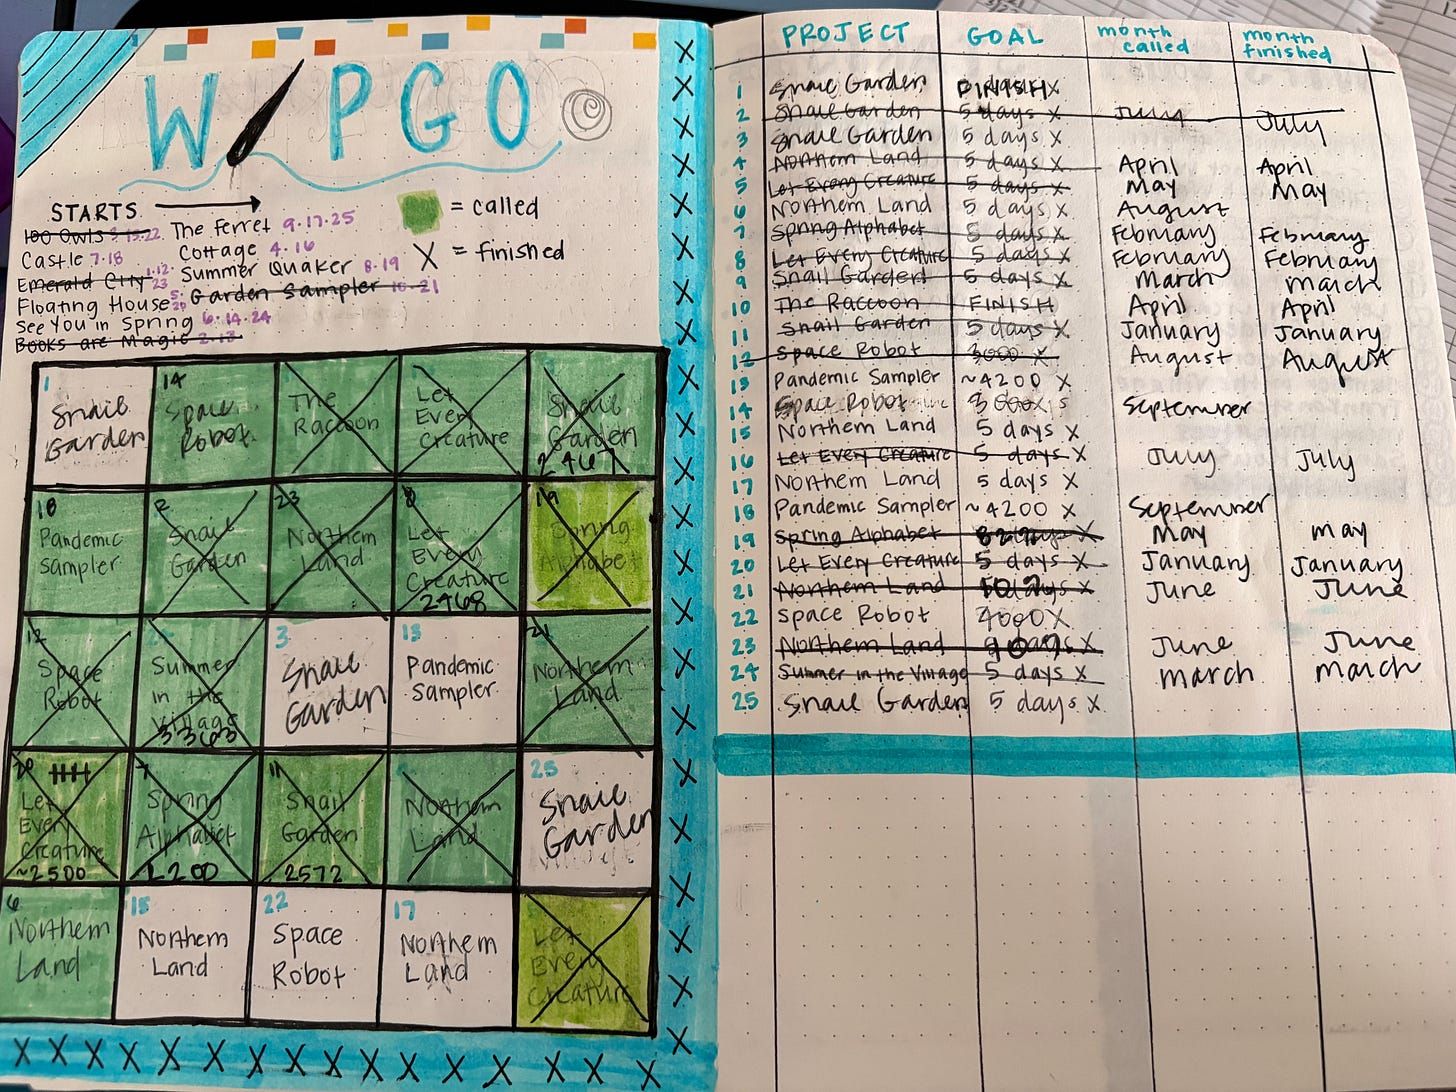 W I P G O
= called
X = finished
STARTS
100 Owls The Ferret 9.17.25
Castle 7.18 Cottage 4.16
Emerald City 1.12.23 Summer Quaker 8.19
Floating House 5.20 Garden Sampler 10.21
See You in Spring 6.14.24
Books are Magic 2.13
1 14 9
Snail Garden Space Robot The Raccoon Let Every Creature Snail Garden 2467
18 2 23 8 19
Pandemic Sampler Snail Garden Northern Land Let Every Creature 2468 Spring Alphabet
12 24 3 13 21
Space Robot Summer in the Village 3363 Snail Garden Pandemic Sampler Northern Land
20 7 11 25
Let Every Creature ~2500 Spring Alphabet 2200 Snail Garden 2572 Northern Land Snail Garden
6 15 22 17
Northern Land Northern Land Space Robot Northern Land Let Every Creature
PROJECT GOAL month called month finished
1 Snail Garden FINISH X
2 Snail Garden 5 days X July July
3 Snail Garden 5 days X
4 Northern Land 5 days X April April
5 Let Every Creature 5 days X May May
6 Northern Land 5 days X August
7 Spring Alphabet 5 days X February February
8 Let Every Creature 5 days X February February
9 Snail Garden 5 days X March march
10 The Raccoon FINISH April April
11 Snail Garden 5 days X January January
12 Space Robot 3000 X August August
13 Pandemic Sampler ~4200 X
14 Space Robot September
15 Northern Land 5 days X
16 Let Every Creature 5 days X July July
17 Northern Land 5 days X
18 Pandemic Sampler ~4200 X September
19 Spring Alphabet X May may
20 Let Every Creature 5 days X January January
21 Northern Land X June June
22 Space Robot 4000 X
23 Northern Land X June June
24 Summer in the Village 5 days X march march
25 Snail Garden 5 days X